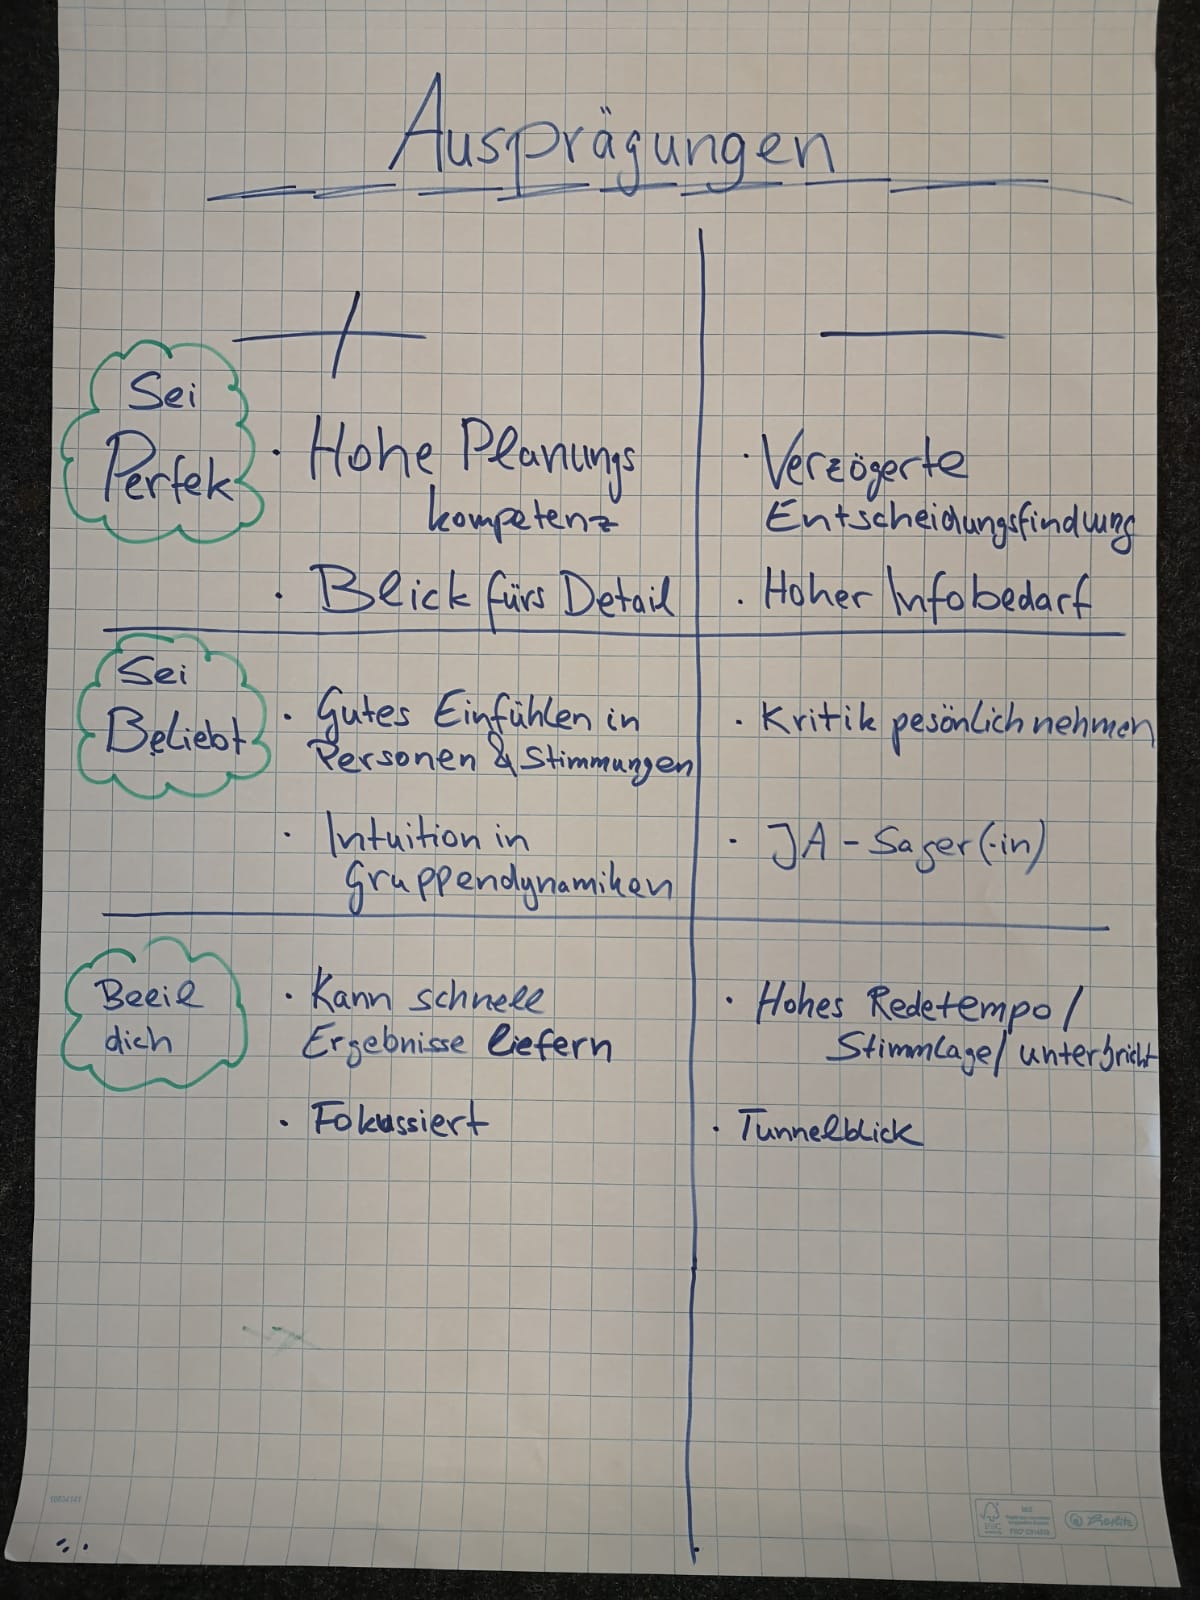 Ausprägungen
+ —
Sei
Perfek
· Hohe Planungs
kompetenz
· Blick fürs Detail
· Verzögerte
Entscheidungsfindung
· Hoher Infobedarf
Sei
Beliebt
· Gutes Einfühlen in
Personen & Stimmungen
· Intuition in
Gruppendynamiken
· Kritik pesönlich nehmen
· JA - Sager(-in)
Beeil
dich
· Kann schnell
Ergebnisse liefern
· Fokussiert
· Hohes Redetempo/
Stimmlage/ unterbricht
· Tunnelblick
FSC
Herlitz